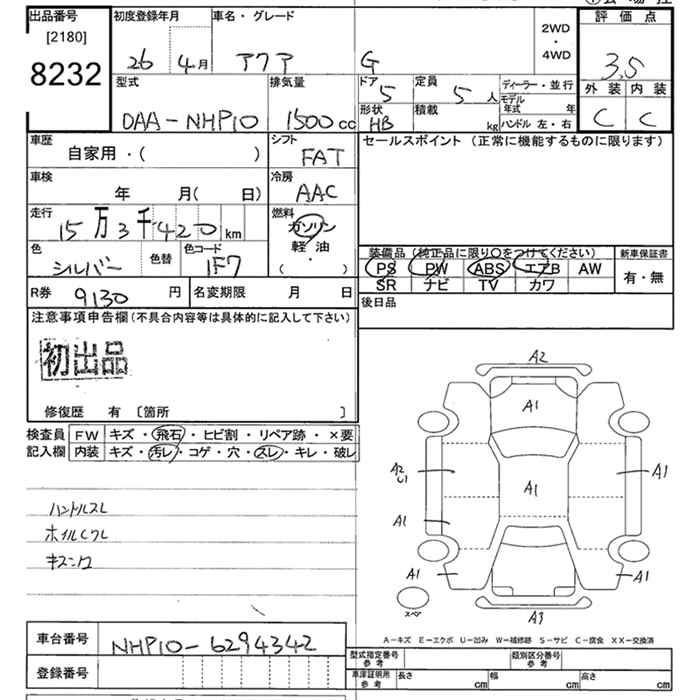 出品番号 初度登録年月 車名・グレード 2WD・4WD 評価点
[2180]
8232 26 4月 アクア G 3.5
型式 排気量 ドア 定員 ディーラー・並行 外装 内装
DAA-NHP10 1500cc 5 5人 モデル年式 年 C C
形状 積載 ハンドル 左・右
HB kg
車歴 シフト セールスポイント (正常に機能するものに限ります)
自家用・( ) FAT
車検 冷房
年 月( 日) AAC
走行 燃料
15万3千420km ガソリン
軽油
・
( )
色 色替 色コード 装備品 (純正品に限り○をつけてください) 新車保証書
シルバー 1F7 PS PW ABS エアB AW 有・無
SR ナビ TV カワ
R券 9130円 名変期限 月 日 後日品
注意事項申告欄(不具合内容等は具体的に記入して下さい)
初出品
修復歴 有 〔箇所 〕
検査員 FW キズ・飛石・ヒビ割・リペア跡・×要
記入欄 内装 キズ・汚レ・コゲ・穴・スレ・キレ・破レ
A2
A1
A2
U1
A1
A1
ハンドルスレ
A1
ホイルCワレ
A1
A1
スペア
A9
A-キズ E-エクボ U-凹み W-補修跡 S-サビ C-腐食 XX-交換済
車台番号 NHP10-6294342
型式指定番号 参考 類別区分番号 参考
登録番号 車庫証明用 参考 長さ cm 幅 cm 高さ cm